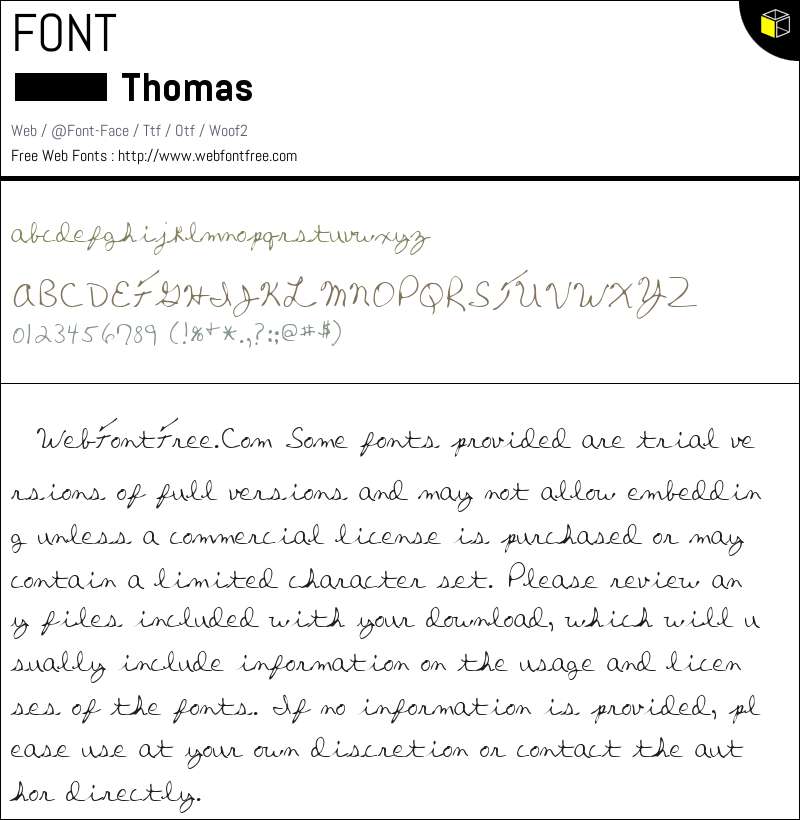 FONT
Thomas
Web / @Font-Face / Ttf / Otf / Woof2
Free Web Fonts : http://www.webfontfree.com
abcdefghijklmnopqrstuvwxyz
ABCDEFGHIJKLMNOPQRSTUVWXYZ
0123456789 (!%+*.,?:;@#$)
WebFontFree.Com Some fonts provided are trial ve
rsions of full versions and may not allow embeddin
g unless a commercial license is purchased or may
contain a limited character set. Please review an
y files included with your download, which will u
sually include information on the usage and licen
ses of the fonts. If no information is provided, pl
ease use at your own discretion or contact the aut
hor directly.